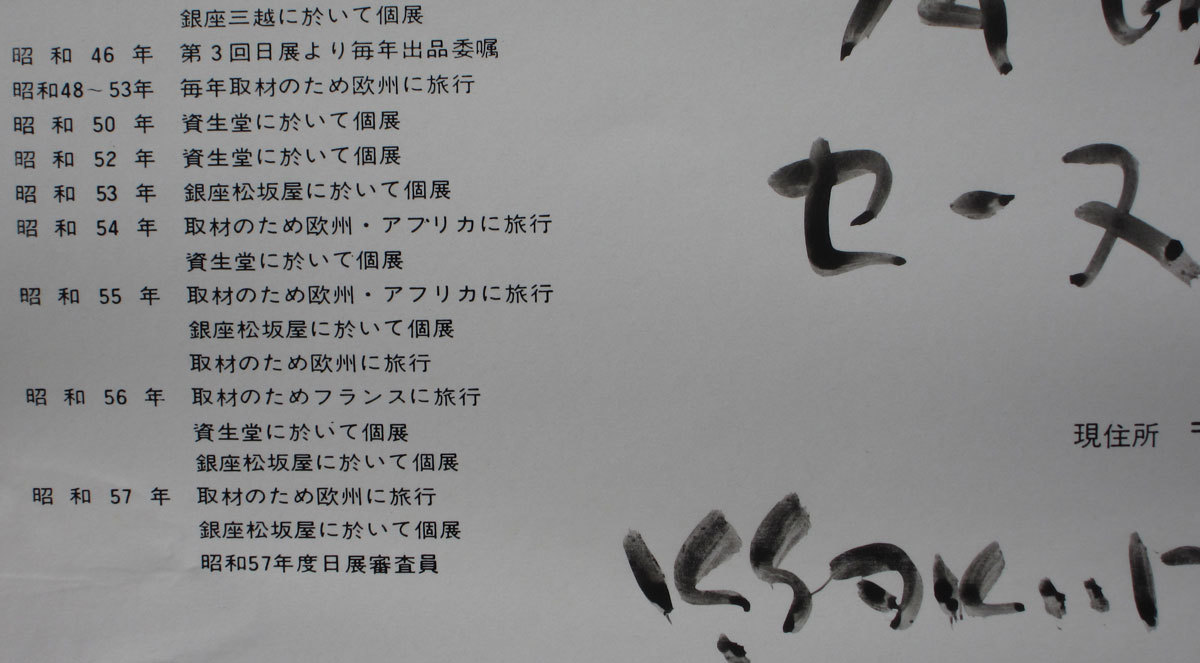 銀座三越に於いて個展
昭和46年 第3回日展より毎年出品委嘱
昭和48~53年 毎年取材のため欧州に旅行
昭和50年 資生堂に於いて個展
昭和52年 資生堂に於いて個展
昭和53年 銀座松坂屋に於いて個展
昭和54年 取材のため欧州・アフリカに旅行
資生堂に於いて個展
昭和55年 取材のため欧州・アフリカに旅行
銀座松坂屋に於いて個展
取材のため欧州に旅行
昭和56年 取材のためフランスに旅行
資生堂に於いて個展
銀座松坂屋に於いて個展
昭和57年 取材のため欧州に旅行
銀座松坂屋に於いて個展
昭和57年度日展審査員
セーヌ
現住所